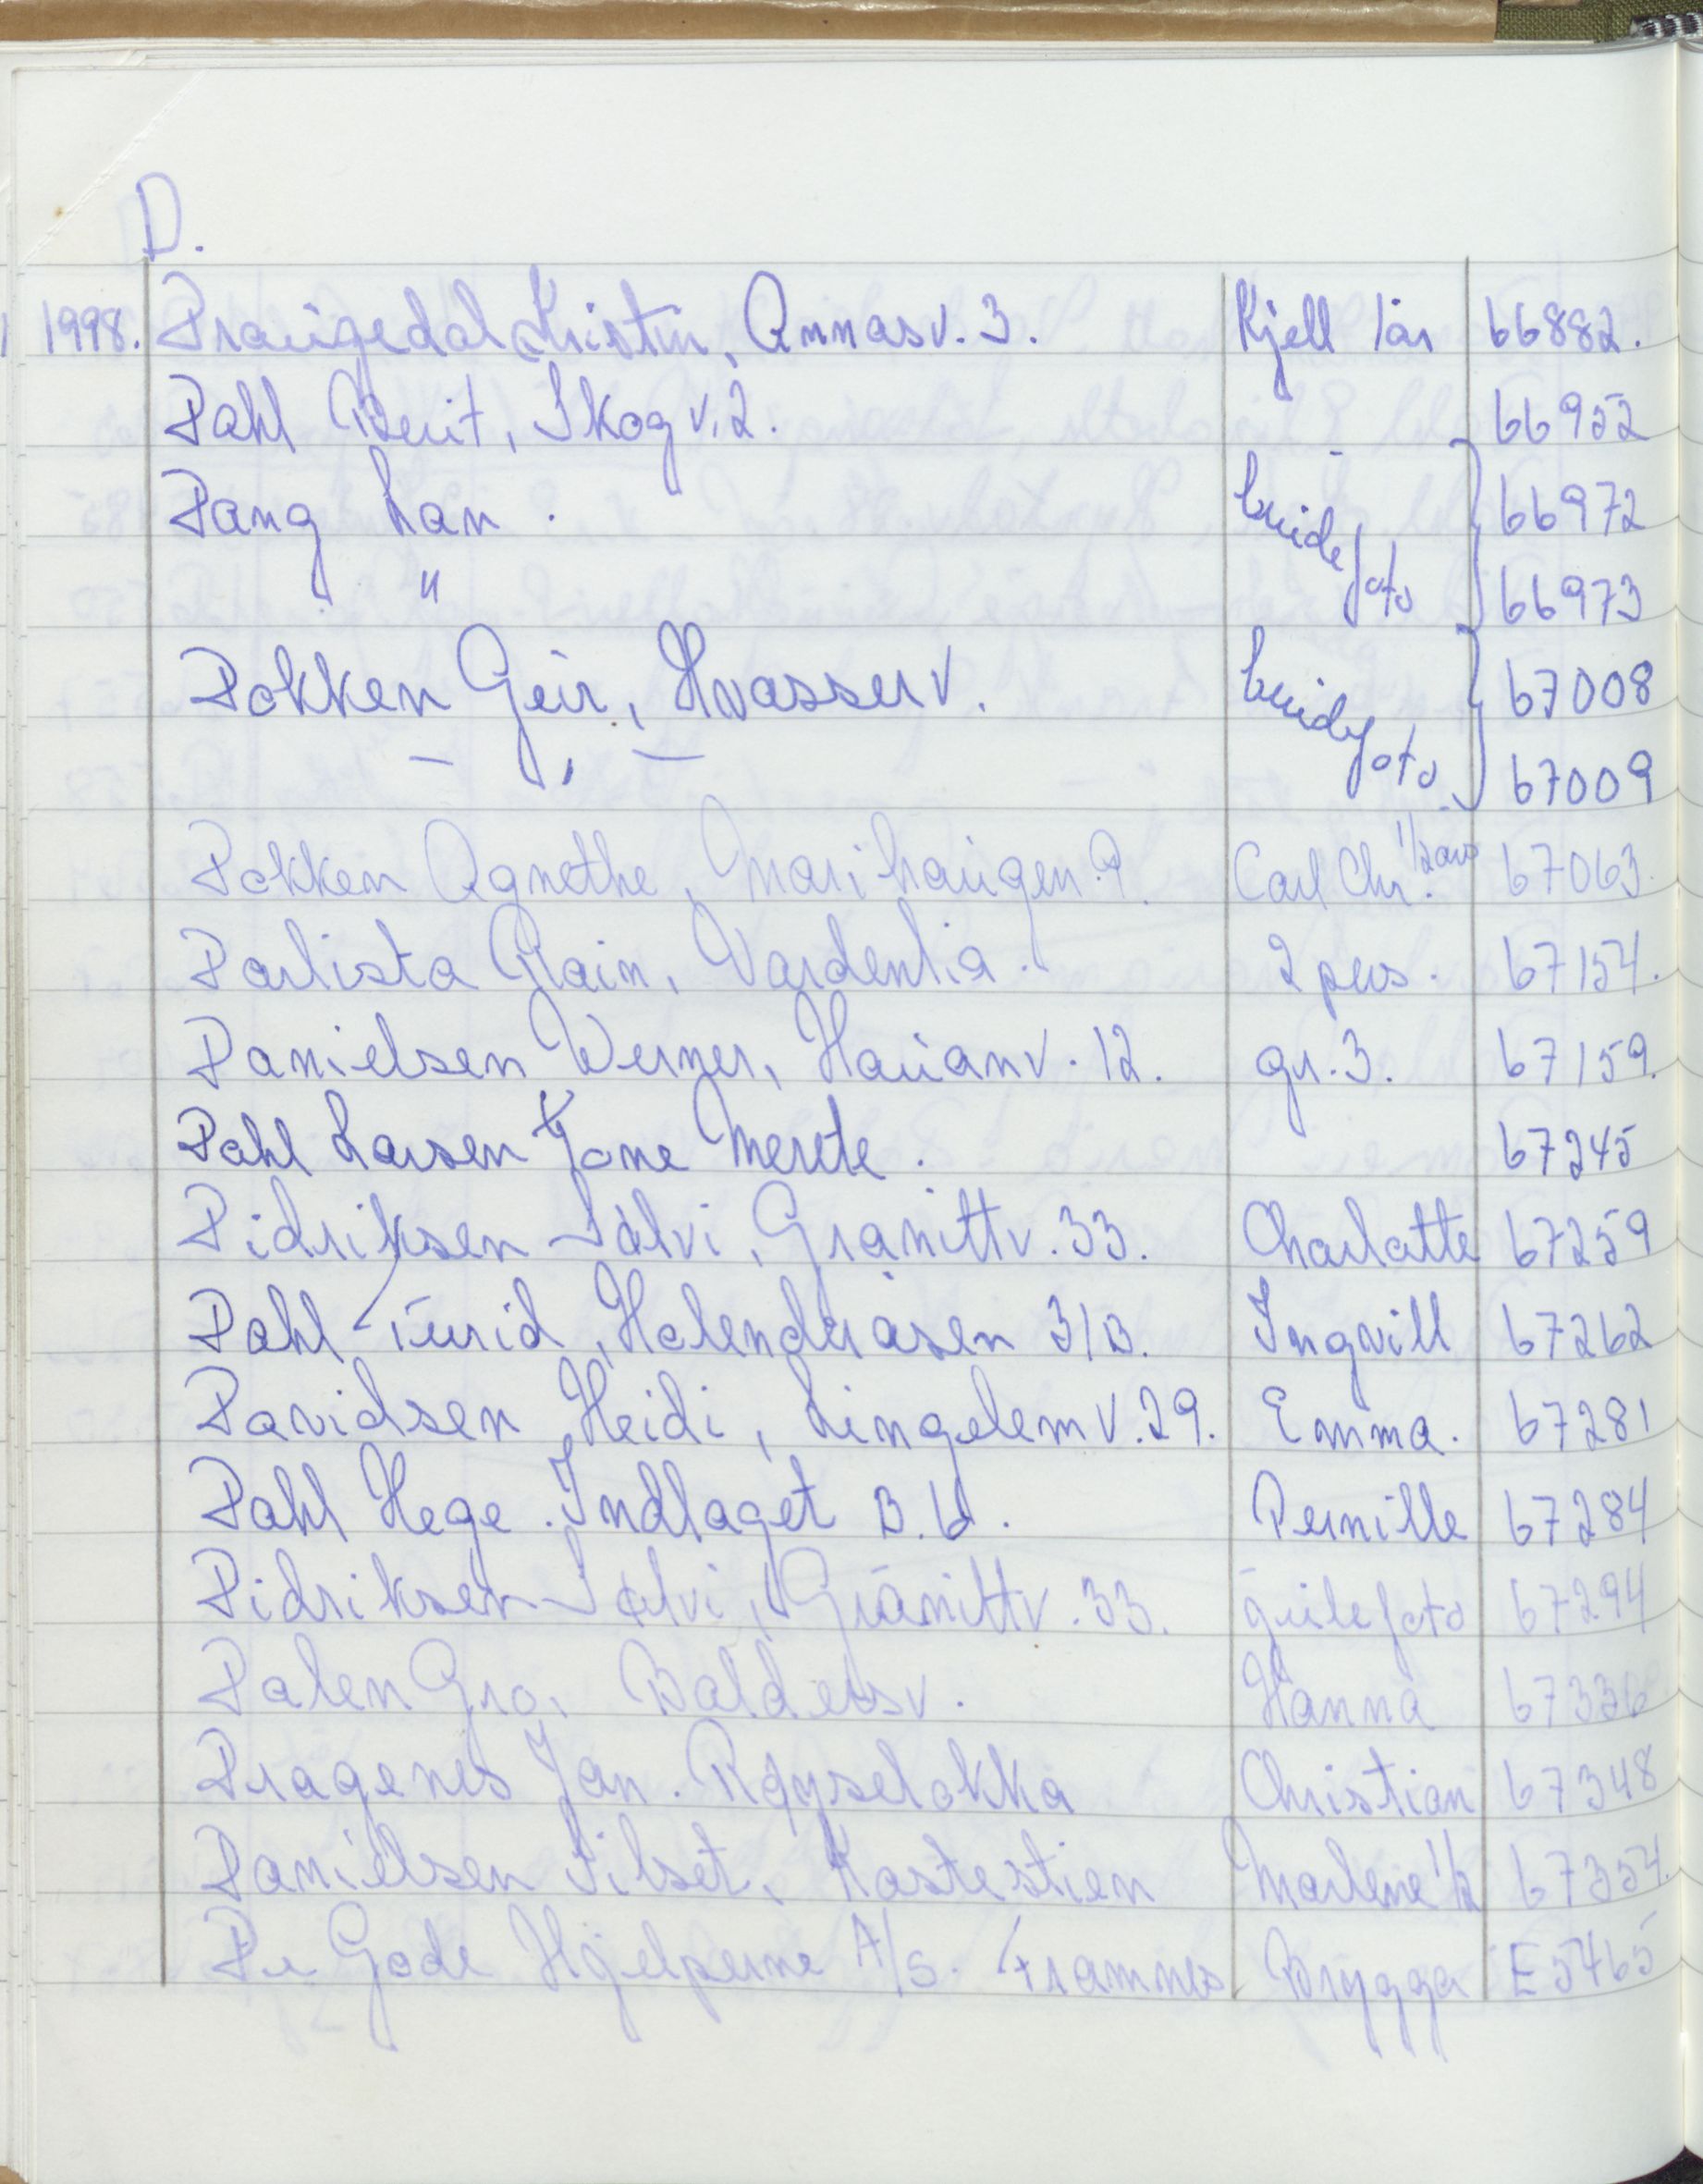 D.
1998. Draugedal Kristin, Annasv. 3. Kjell 1år 66882.
Dahl Berit, Skogv. 2. 66952
Dang Lan. brudefoto 66972
" 66973
Dokken Geir, Hvasserv. brudefoto 67008
— , — 67009
Dokken Agnethe, Marihaugen 9. Carl Chr. 1/2 år 67063.
Darlista Rain, Vardenlia. 2 pers. 67154.
Danielsen Werner, Hauanv. 12. gr. 3. 67159.
Dahl Larsen Tone Merete. 67245
Didriksen Sølvi, Granittv. 33. Charlotte 67259
Dahl Turid, Holenderåsen 31B. Ingvill 67262
Davidsen Heidi, Lingelemv. 29. Emma. 67281
Dahl Hege. Indlaget B.6. Pernille 67284
Didriksen Sølvi, Granittv. 33. gullefoto 67294
Dalen Gro, Baldersv. Hanna 67336
Dragenes Jan. Røyseløkka Christian 67348
Danielsen Filset, Kastestien Marlene 1/2 67354.
De Gode Hjelperne A/S. Framnes Brygga E5465